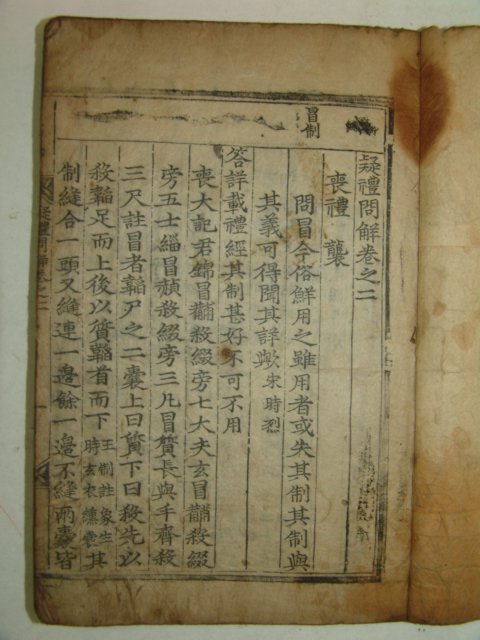 冒制
疑禮問解卷之二
喪禮 襲
問冒今俗鮮用之雖用者或失其制其制與
其義可得聞其詳歟宋時烈
答詳載禮經其制甚好不可不用
喪大記君錦冒黼殺綴旁七大夫玄冒黼殺綴
旁五士緇冒赬殺綴旁三凡冒質長與手齊殺
三尺註冒者韜尸之二囊上曰質下曰殺先以
殺韜足而上後以質韜首而下王制註象生時玄衣纁裳其
制縫合一頭又縫連一邊餘一邊不縫兩囊皆
疑禮問解卷之二